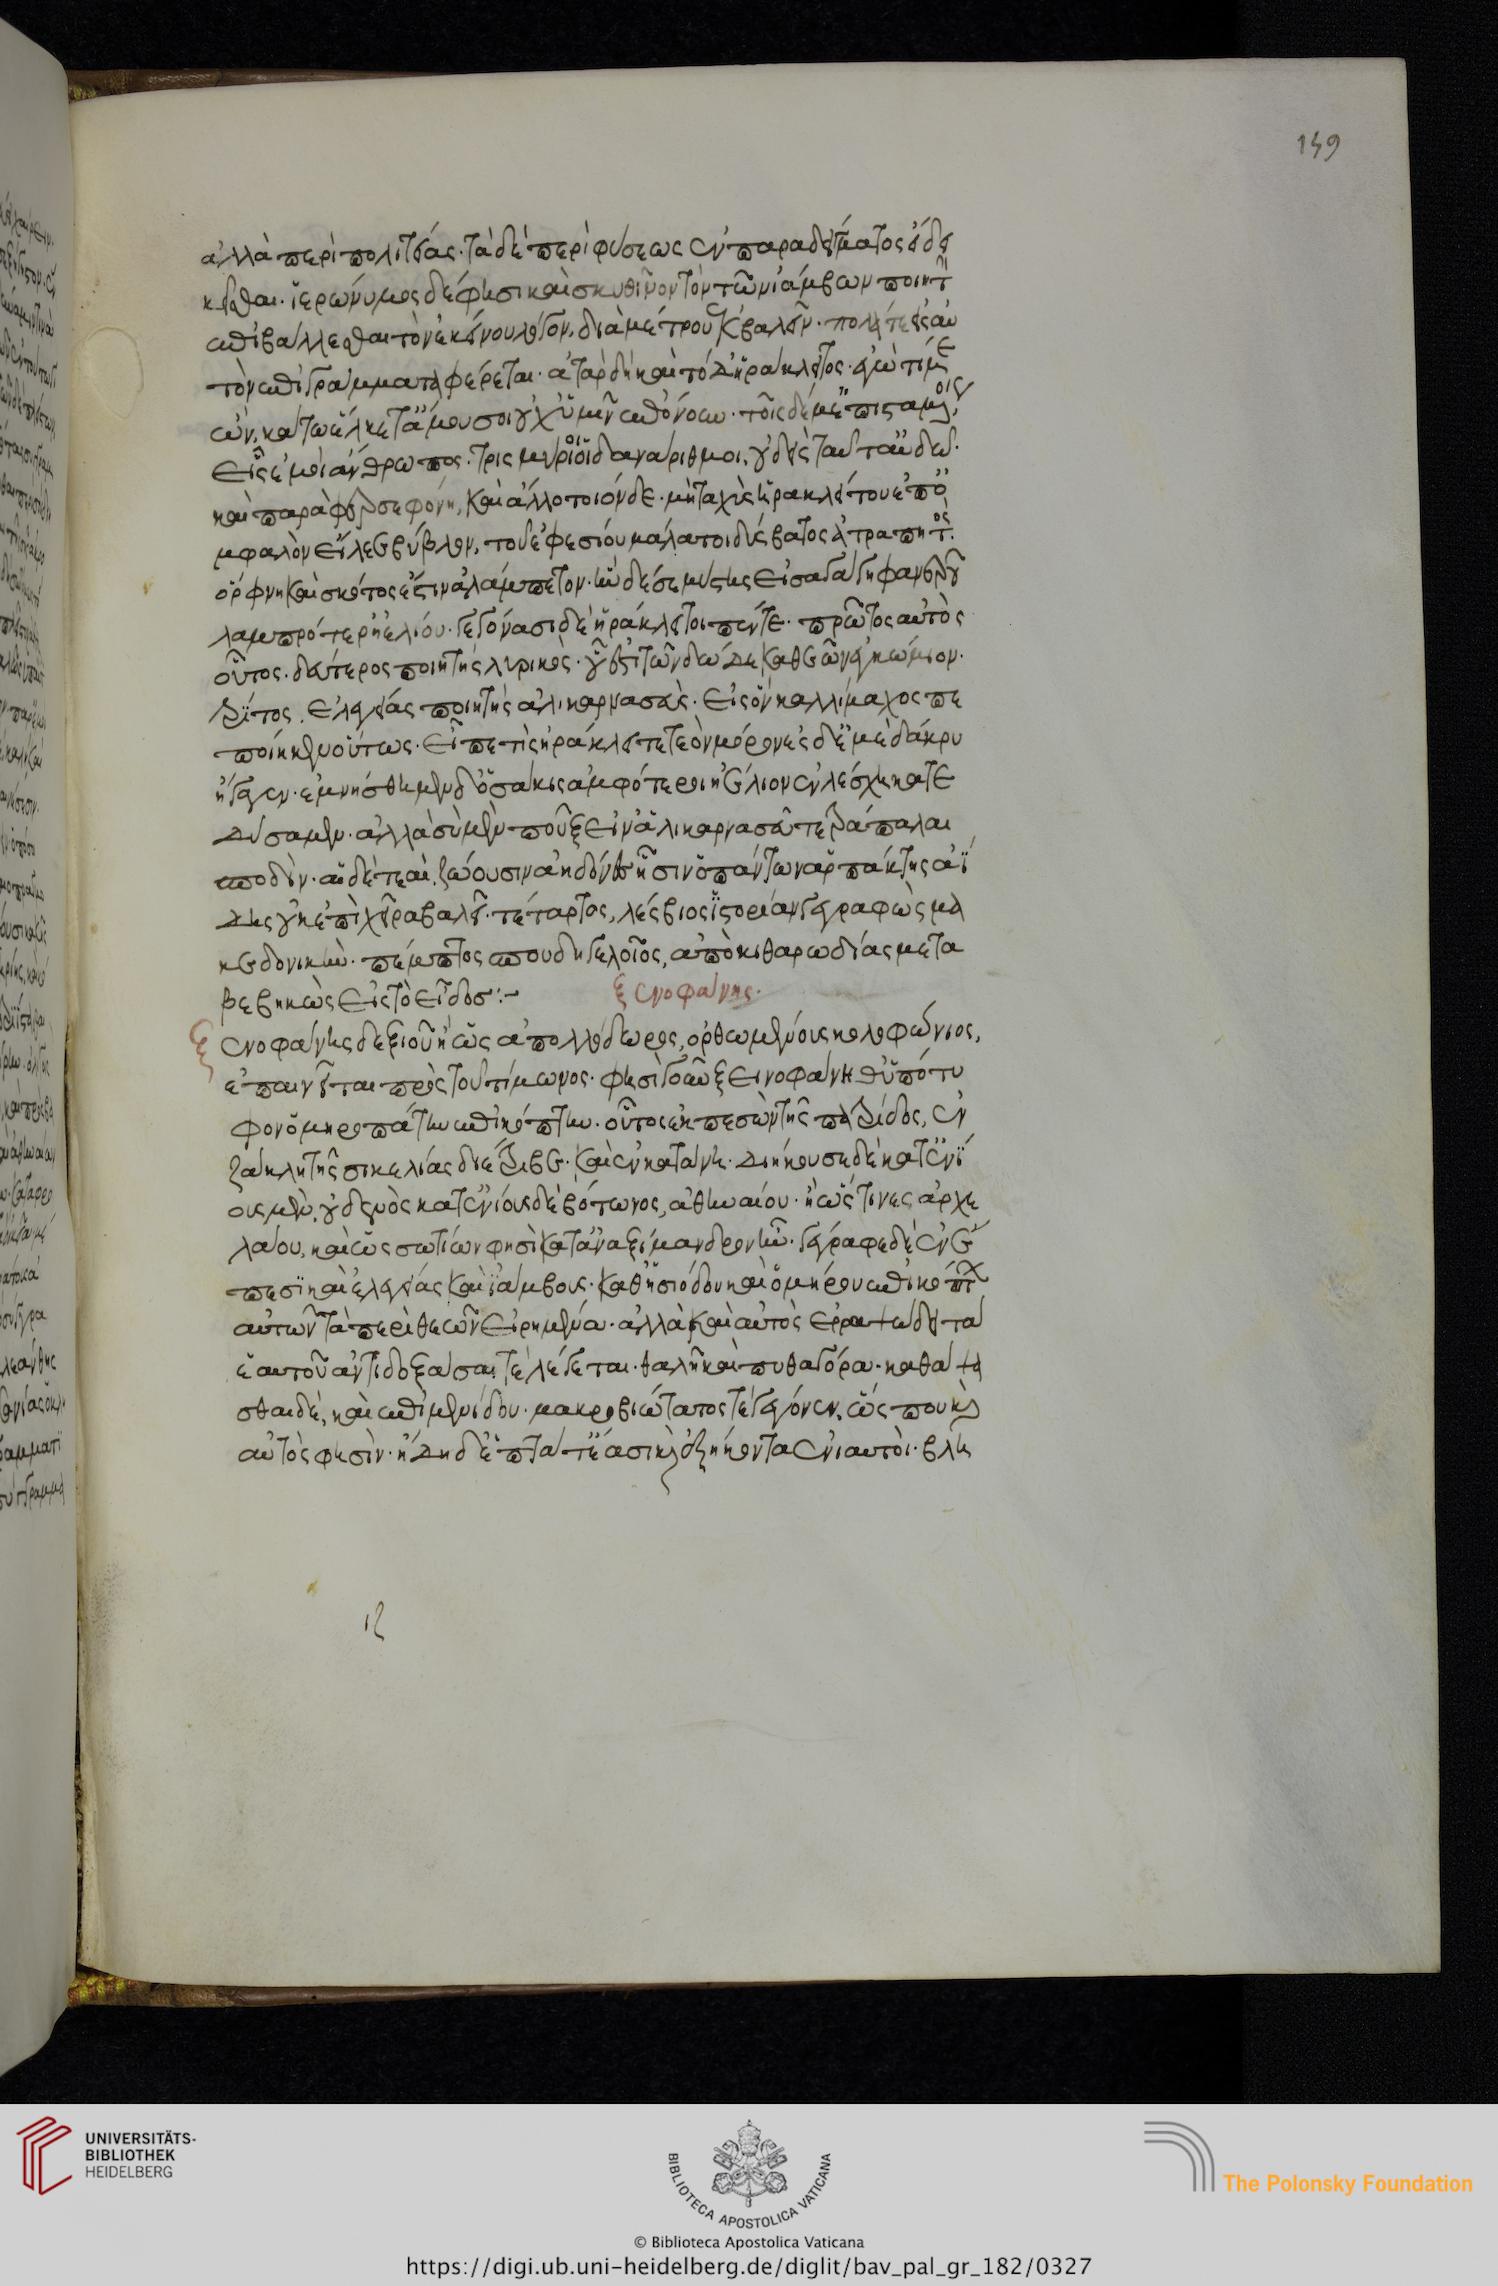 159
ἀλλὰ περὶ πολιτείας· τὰ δὲ περὶ φύσεως ἐν παραδείγματος εἴδει
κεῖσθαι. ἱερώνυμος δέ φησι καὶ σκυθῖνον τὸν τῶν ἰάμβων ποιητὴν
ἐπιβάλλεσθαι τὸν ἐκείνου λόγον, διὰ μέτρου ἐκβαλεῖν. πολλά τε εἰς αὐ
τὸν ἐπιγράμματα φέρεται. ἀτὰρ δὴ καὶ τόδε ἡράκλειτος ἐγὼ τί με
κάτω ἕλκετ' ἄμουσοι οὐχ ὑμῖν ἐπόνουν. τοῖς δέ μ' ἐπισταμένοις
εἷς ἐμοὶ ἄνθρωπος τρισμύριοι οἱ δ' ἀνάριθμοι, οὐδεὶς ταῦτ' αὐδῶ
καὶ παρὰ φερσεφόνῃ, καὶ ἄλλο τοιόνδε. μὴ ταχὺς ἡρακλείτου ἐπ' ὀ
μφαλὸν εἴλεε βύβλον, τοῦ ἐφεσίου μάλα τοι δύσβατος ἀτραπητός.
ὄρφνη καὶ σκότος ἐστὶν ἀλάμπετον· ἢν δέ σε μύστης εἰσαγάγῃ φανεροῦ
λαμπρότερ' ἠελίου. γεγόνασι δὲ ἡράκλειτοι πέντε. πρῶτος αὐτὸς
οὗτος. δεύτερος ποιητὴς λυρικὸς· οὗ ἐστι τῶν δώδεκα θεῶν ἐγκώμιον.
τρίτος ἐλεγείας ποιητὴς ἁλικαρνασεὺς. εἰς ὃν καλλίμαχος πε
ποίηκεν οὕτως. εἶπέ τις ἡράκλειτε τεὸν μόρον ἐς δέ με δάκρυ
ἤγαγεν. ἐμνήσθην δ' ὁσάκις ἀμφότεροι ἠέλιον ἐν λέσχῃ κατε
δύσαμεν. ἀλλὰ σὺ μὲν που ξεῖν' ἁλικαρνασεῦ τετράπαλαι
σποδιή. αἱ δὲ τεαὶ ζώουσιν ἀηδόνες ᾗσιν ὁ πάντων ἁρπακτὴς ἀΐ
δης οὐκ ἐπὶ χεῖρα βαλεῖ. τέταρτος, λέσβιος ἱστορίαν γεγραφὼς μα
κεδονικὴν. πέμπτος σπουδογελοῖος, ἀπὸ κιθαρωδίας μετα
βεβηκὼς εἰς τὸ εἶδος:~ ξενοφάνης.
ξενοφάνης δεξιοῦ ἢ ὡς ἀπολλόδωρος, ὀρθομένους κολοφώνιος,
ἐπαινεῖται πρὸς τοῦ τίμωνος. φησὶ γοῦν ξεινοφάνη θ' ὑπότυ
φον ὁμηροπάτην ἐπικόπτην. οὗτος ἐκπεσὼν τῆς πατρίδος, ἐν
ζάγκλῃ τῆς σικελίας διέτριβε. καὶ ἐν κατάνῃ. διήκουσε δὲ κατ' ἐνί
ους μὲν, οὐδενὸς κατ' ἐνίους δὲ βότωνος, ἀθηναίου. ἢ ὥς τινες ἀρχε
λάου, καὶ ὡς σωτίων φησὶ κατ' ἀναξίμανδρον ἦν. γέγραφε δὲ ἐν ἔ
πεσι καὶ ἐλεγείας καὶ ἰάμβους. καθ' ἡσιόδου καὶ ὁμήρου ἐπικόπτων
αὐτῶν τὰ περὶ θεῶν εἰρημένα. ἀλλὰ καὶ αὐτὸς ἐρραψώδει τὰ
ἑαυτοῦ ἀντιδοξάσαι τε λέγεται. θαλῆ καὶ πυθαγόρα. καθάψα
σθαι δέ, καὶ ἐπιμενίδου. μακροβιώτατός τε γέγονεν, ὥς που καὶ
αὐτὸς φησὶν. ἤδη δ' ἑπτά τ' ἔασι καὶ ἑξήκοντα ἐνιαυτοὶ. βλη
ιζ
UNIVERSITÄTS-
BIBLIOTHEK
HEIDELBERG
BIBLIOTECA APOSTOLICA VATICANA
© Biblioteca Apostolica Vaticana
The Polonsky Foundation
https://digi.ub.uni-heidelberg.de/diglit/bav_pal_gr_182/0327